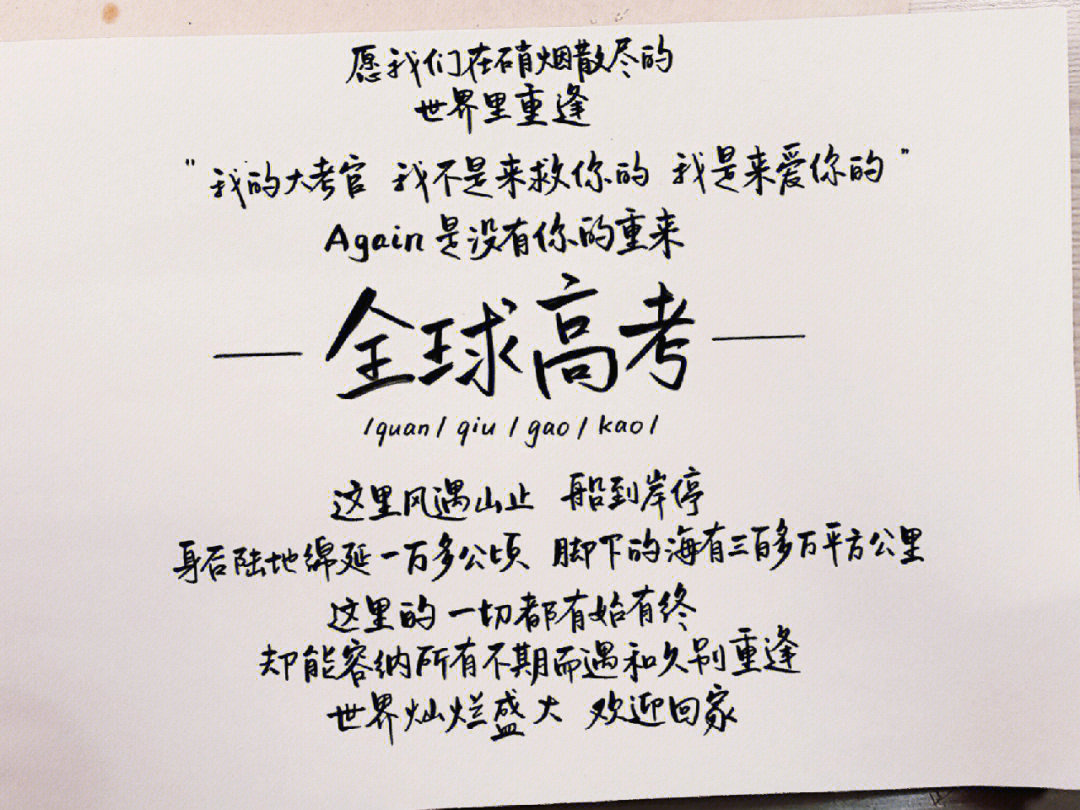 愿我们在硝烟散尽的
世界里重逢
"我的大考官 我不是来救你的 我是来爱你的"
Again是没有你的重来
—全球高考—
/quan/ qiu / gao / kao/
这里风遇山止 船到岸停
身后陆地绵延一万多公顷 脚下的海有三百多万平方公里
这里的一切都有始有终
却能容纳所有不期而遇和久别重逢
世界灿烂盛大 欢迎回家